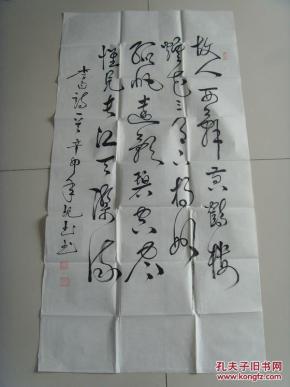 故人西辞黄鹤楼
烟花三月下扬州
孤帆远影碧空尽
惟见长江天际流
李白诗一首 辛卯年
孔夫子旧书网